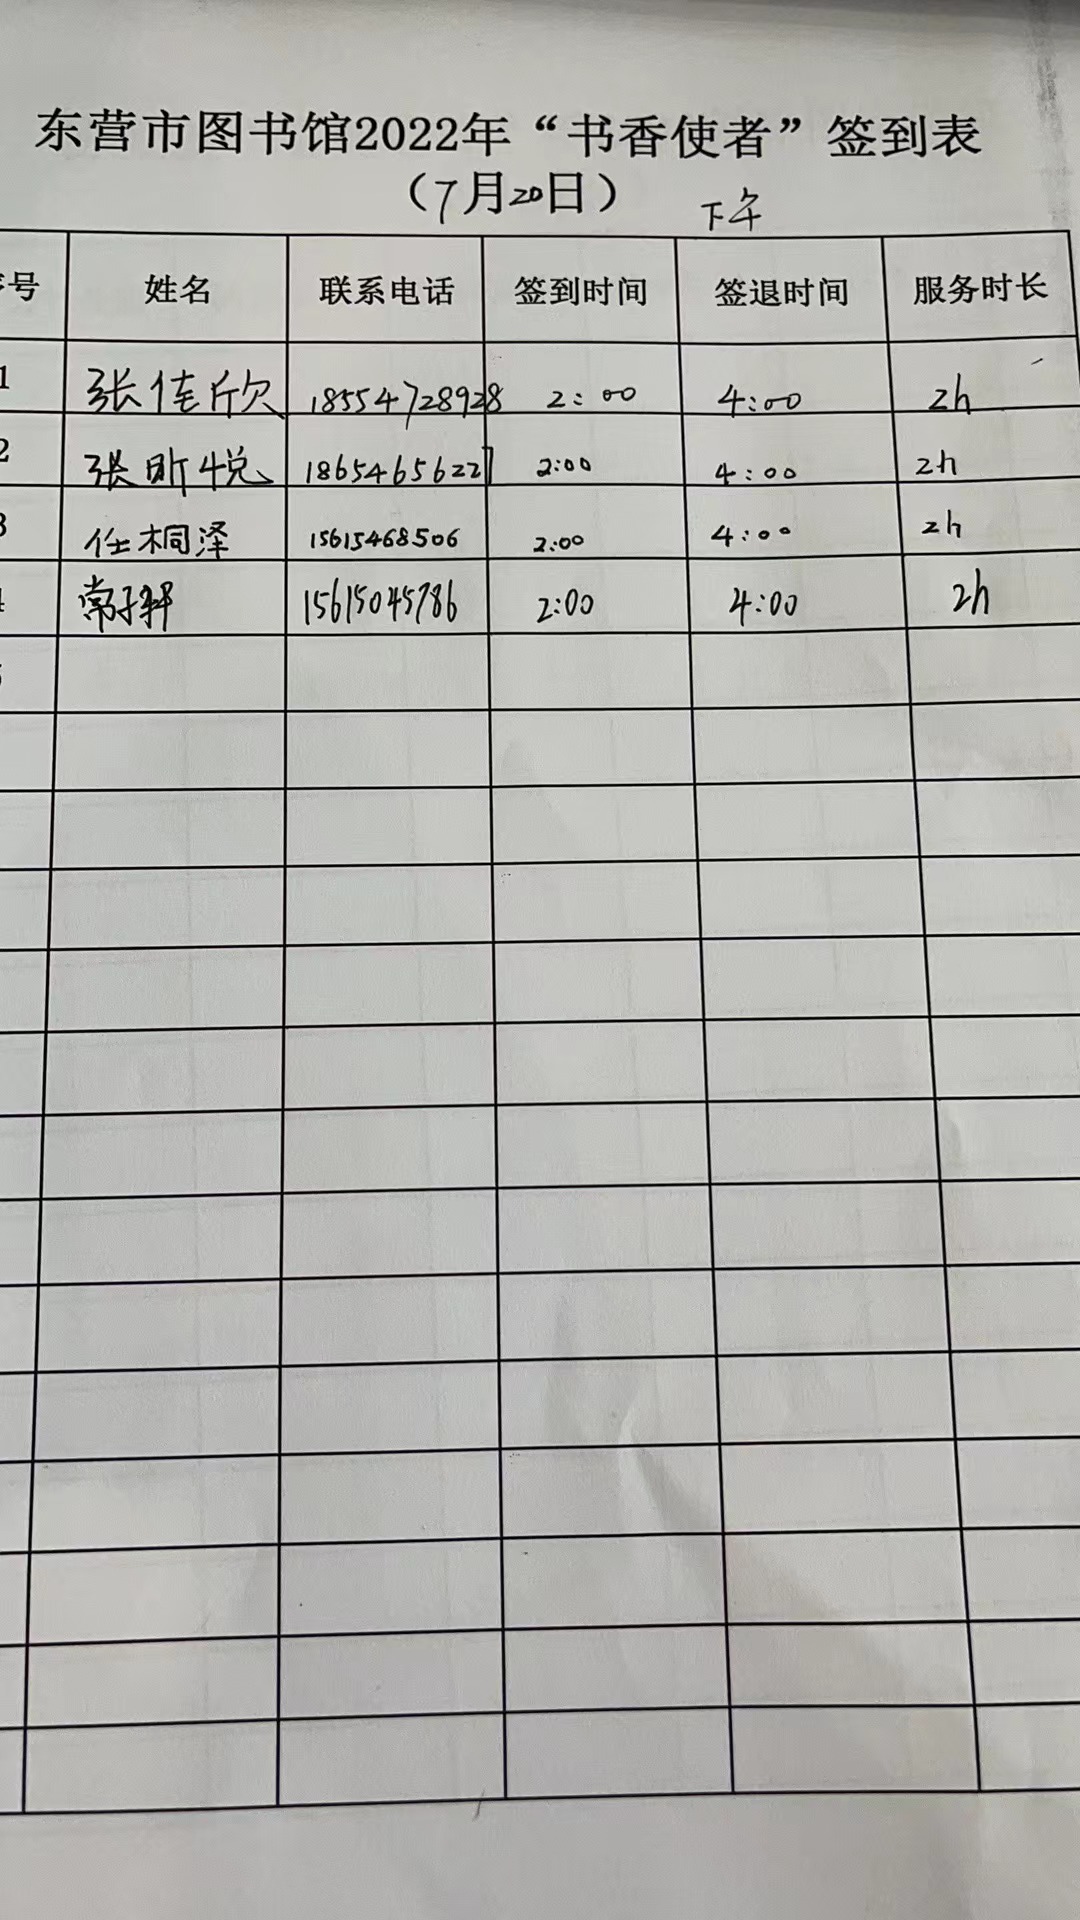 东营市图书馆2022年“书香使者”签到表
（7月20日） 下午
序号 姓名 联系电话 签到时间 签退时间 服务时长
1 张佳欣 18554728928 2:00 4:00 2h
2 张昕悦 18654656227 2:00 4:00 2h
3 任桐泽 15615468506 2:00 4:00 2h
4 常子轩 15615045786 2:00 4:00 2h
5